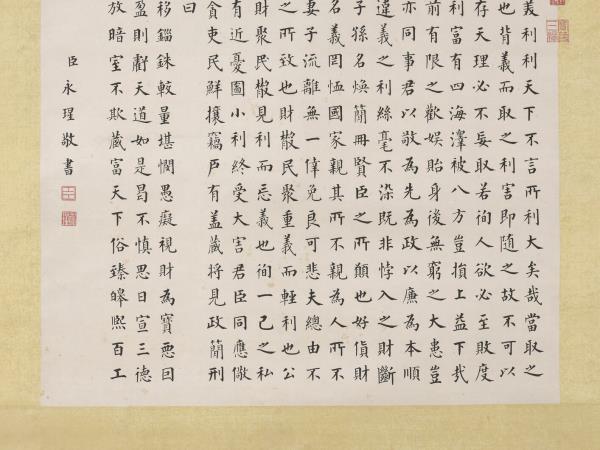 義利利天下不言所利大矣哉當取之
也背義而取之利害即隨之故不可以
存天理必不妄取若徇人欲必至敗度
利富有四海澤被八方豈損上益下哉
前有限之歡娛貽身後無窮之大患豈
亦同事君以敬為先為政以廉為本順
違義之利絲毫不染既非悖入之財斷
子孫名煥簡冊賢臣之所願也好貨財
名義罔恤國家親其所不親為人所不
妻子流離無一倖免良可悲夫總由不
之所致也財散民聚重義而輕利也公
財聚民散見利而忘義也徇一己之私
有近憂圖小利終受大害君臣同應儆
貪吏民鮮攘竊戶有蓋藏將見政簡刑
曰
移錙銖較量堪憫愚癡視財為寶惡因
盈則虧天道如是曷不慎思日宣三德
放暗室不欺藏富天下俗臻皞熙百工
臣永瑆敬書